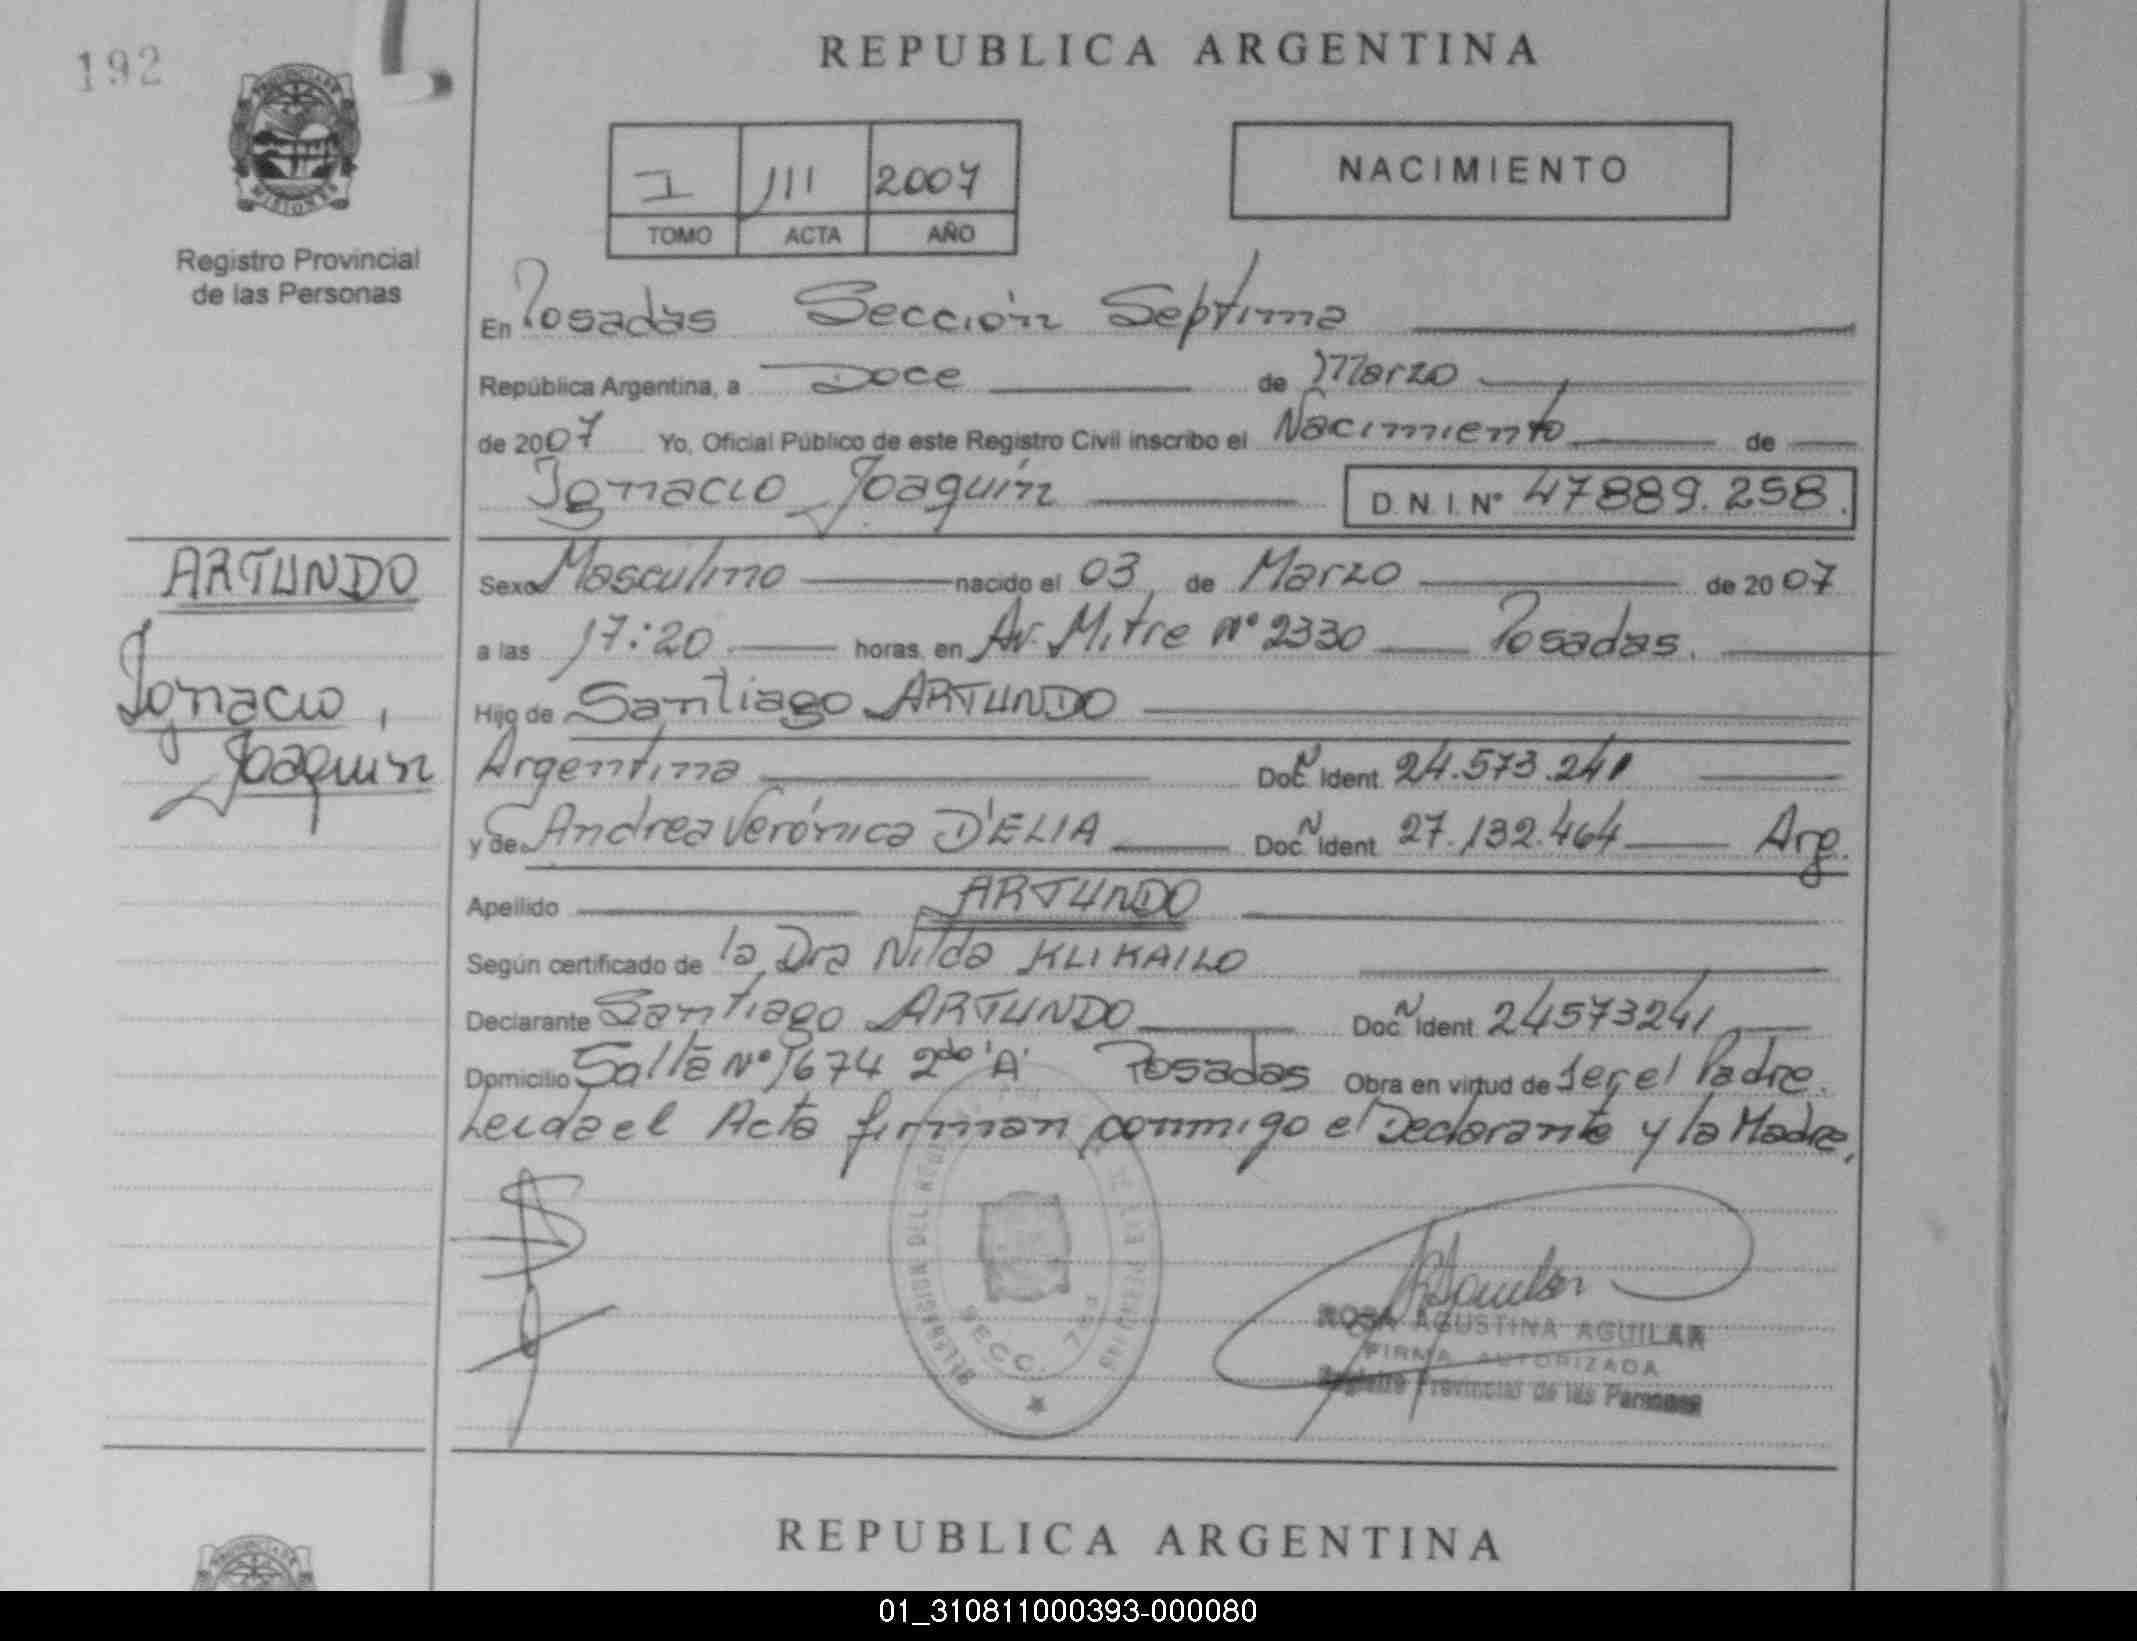 192
REPUBLICA ARGENTINA
I 111 2007
TOMO ACTA AÑO
NACIMIENTO
Registro Provincial
de las Personas
En Posadas Sección Septima
República Argentina, a Doce de Marzo
de 2007 Yo, Oficial Público de este Registro Civil inscribo el Nacimiento de
Ignacio Joaquín D.N.I. N° 47889.258.
ARTUNDO
Ignacio,
Joaquín
Sexo Masculino nacido el 03 de Marzo de 2007
a las 17:20 horas, en Av. Mitre N° 2330 Posadas.
Hijo de Santiago ARTUNDO
Argentina Doc. N Ident. 24.573.241
y de Andrea Verónica D'ELIA Doc. N Ident. 27.132.464 Arg.
Apellido ARTUNDO
Según certificado de la Dra Nilda KLIKAILO
Declarante Santiago ARTUNDO Doc. N Ident. 24573241
Domicilio Salta N° 1674 2do 'A' Posadas Obra en virtud de ser el Padre.
Leida el Acta firman conmigo el Declarante y la Madre.
SECC. 7ma
ROSA AGUSTINA AGUILAR
FIRMA AUTORIZADA
Registro Provincial de las Personas
REPUBLICA ARGENTINA
01_310811000393-000080